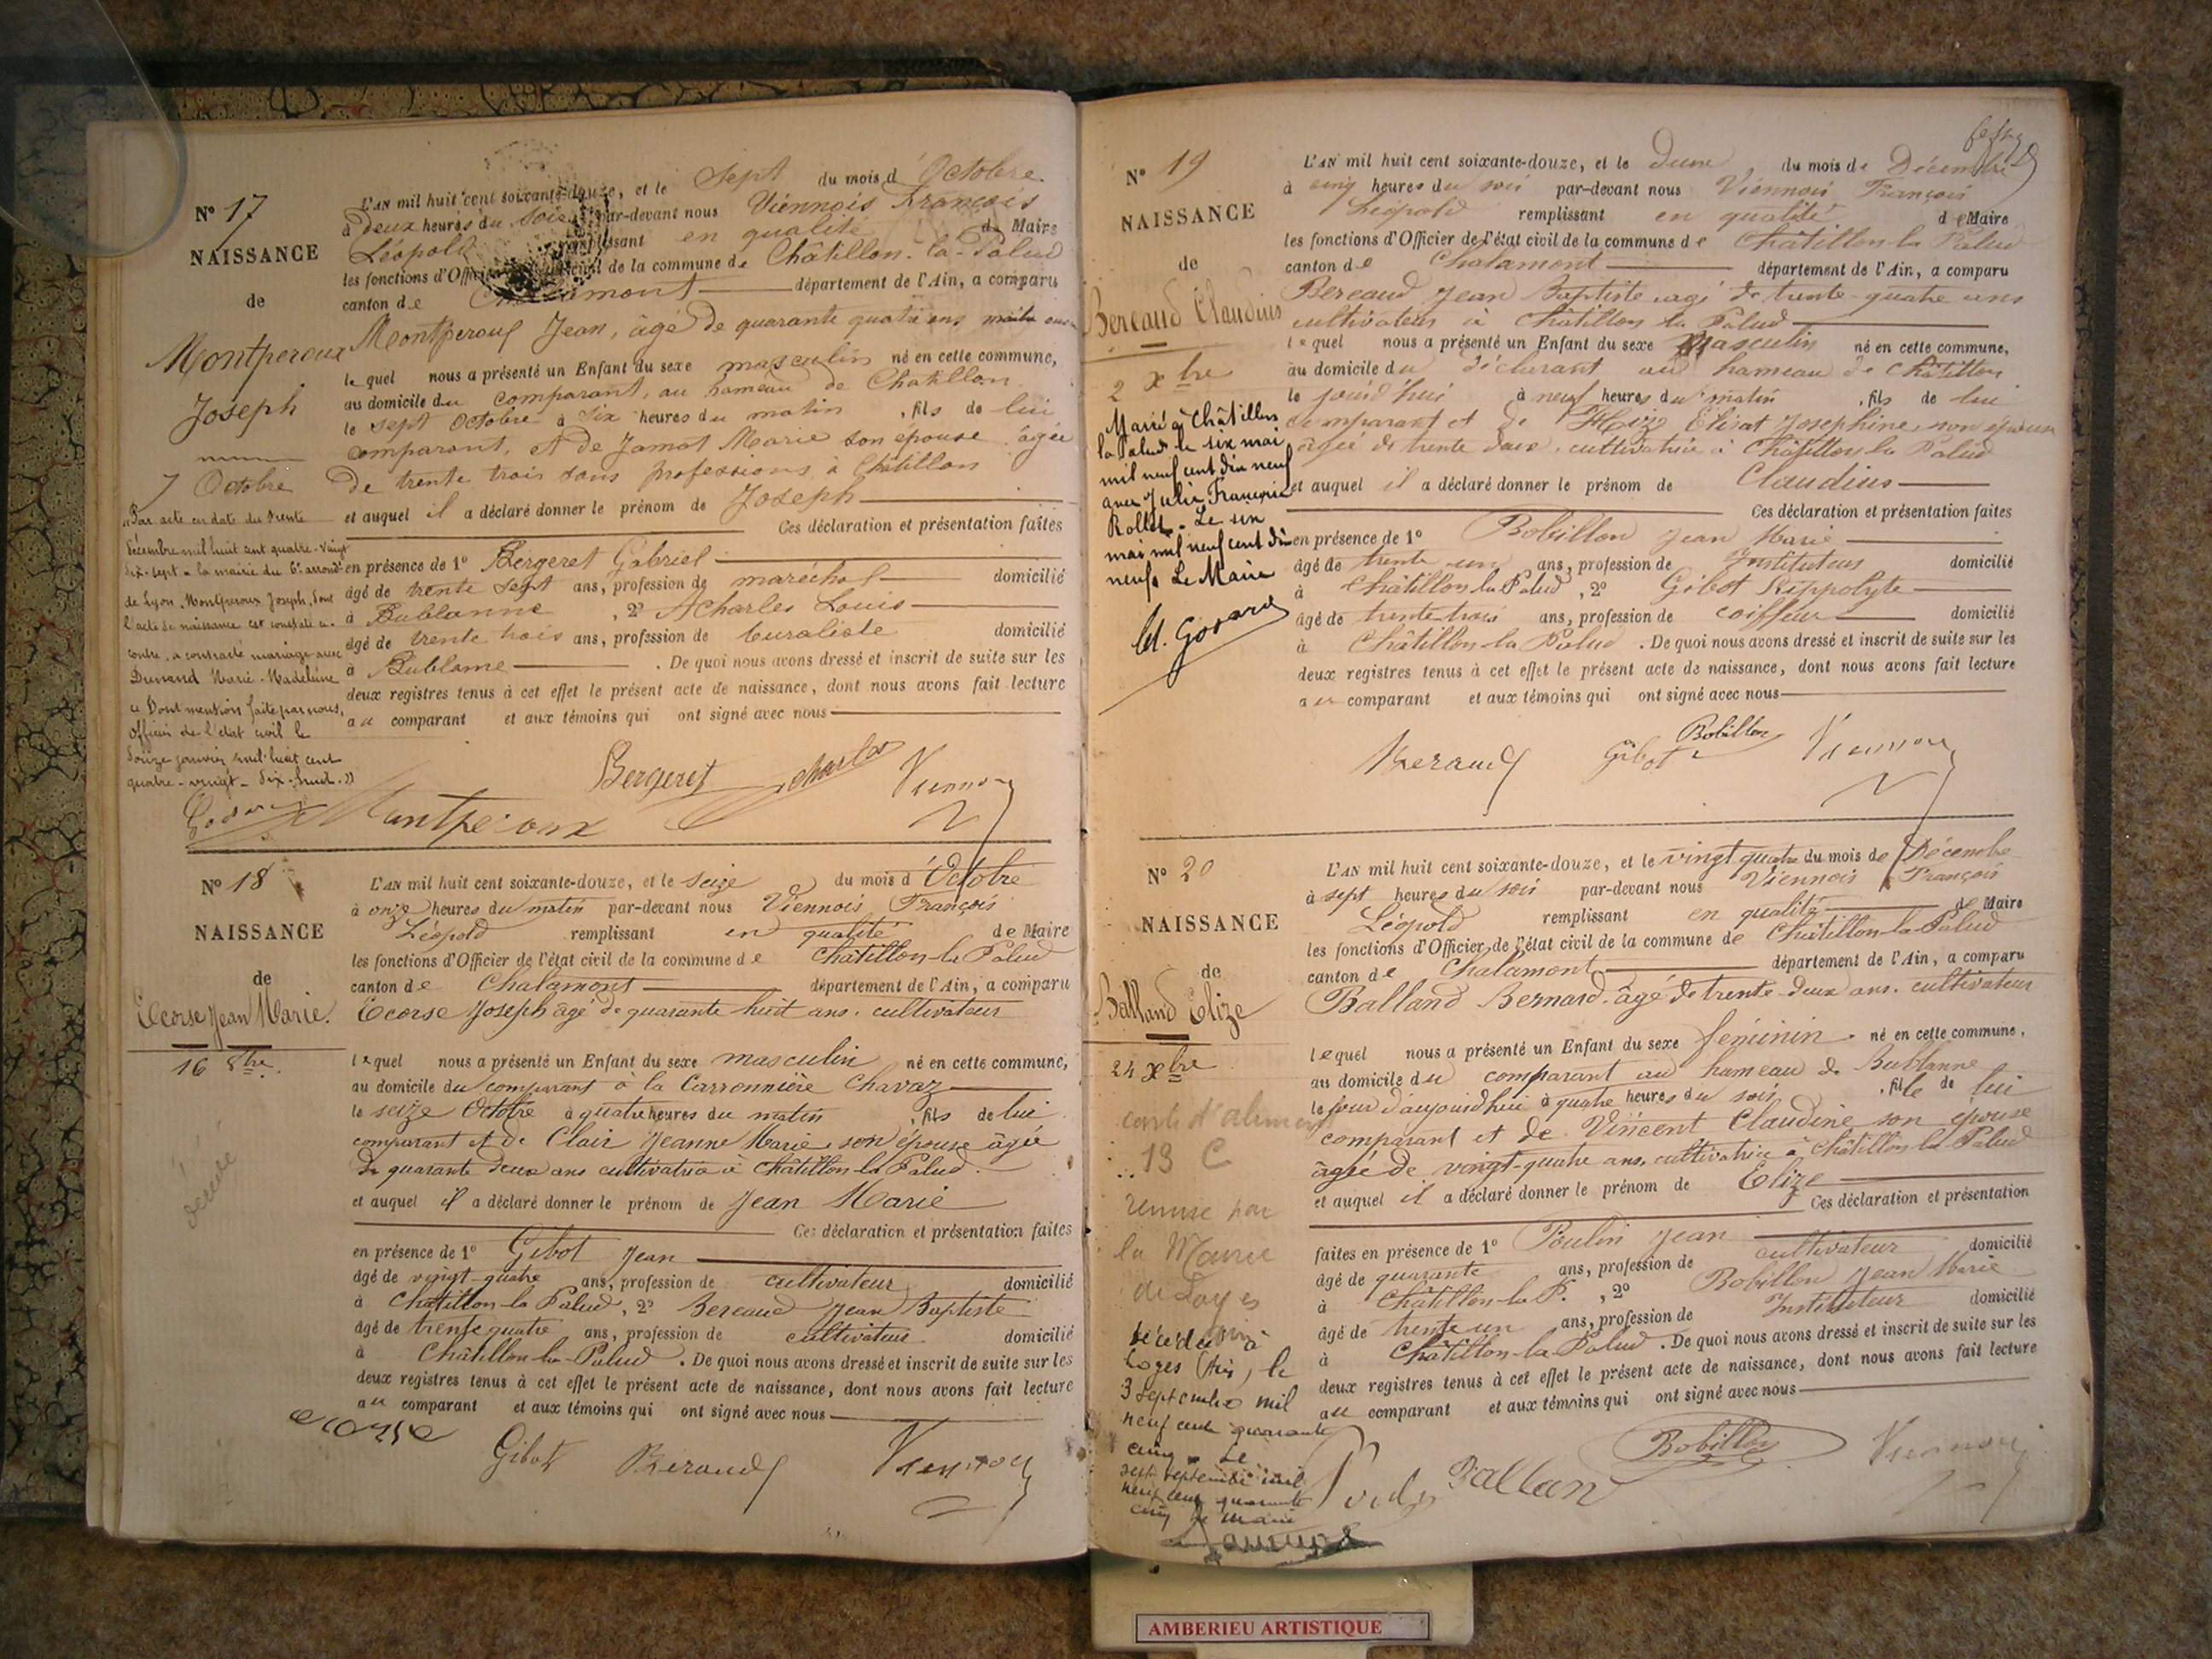 N° 17
NAISSANCE
de
Montperoux
Joseph
7 Octobre
"Par acte en date du trente
décembre mil huit cent quatre-vingt
dix-sept à la mairie du 6e arrond
de Lyon, Montperoux Joseph, dont
l'acte de naissance est constaté ci-
contre, a contracté mariage avec
Durand Marie-Madeleine
Dont mention faite par nous,
officier de l'état civil le
douze janvier mil huit cent
quatre-vingt-dix-huit."
L'AN mil huit cent soixante-douze, et le Sept du mois d'Octobre
à deux heures du soir par-devant nous Viennois François
Léopold remplissant en qualité de Maire
les fonctions d'Officier de l'état civil de la commune de Châtillon-la-Palud
canton de Chalamont département de l'Ain, a comparu
Montperoux Jean, âgé de quarante quatre ans
lequel nous a présenté un Enfant du sexe masculin né en cette commune,
au domicile du comparant, au hameau de Chatillon
le sept Octobre à six heures du matin, fils de lui
comparant, et de Jamot Marie son épouse âgée
de trente trois sans professions, à Châtillon
et auquel il a déclaré donner le prénom de Joseph
Ces déclaration et présentation faites
en présence de 1° Bergeret Gabriel
âgé de trente sept ans, profession de maréchal domicilié
à Bublanne, 2° Charles Louis
âgé de trente trois ans, profession de buraliste domicilié
à Bublanne. De quoi nous avons dressé et inscrit de suite sur les
deux registres tenus à cet effet le présent acte de naissance, dont nous avons fait lecture
au comparant et aux témoins qui ont signé avec nous
Bergeret Charles Viennois
Montperoux
N° 18
NAISSANCE
de
Ecorse Jean Marie.
16 8bre.
L'AN mil huit cent soixante-douze, et le seize du mois d'Octobre
à onze heures du matin par-devant nous Viennois François
Léopold remplissant en qualité de Maire
les fonctions d'Officier de l'état civil de la commune de Châtillon-la Palud
canton de Chalamont département de l'Ain, a comparu
Ecorse Joseph âgé de quarante huit ans, cultivateur
lequel nous a présenté un Enfant du sexe masculin né en cette commune,
au domicile du comparant à la Carronnière Chavaz
le seize Octobre à quatre heures du matin, fils de lui
comparant et de Clair Jeanne Marie, son épouse âgée
de quarante deux ans cultivatrice à Châtillon-la Palud.
et auquel il a déclaré donner le prénom de Jean Marie
Ces déclaration et présentation faites
en présence de 1° Gibot Jean
âgé de vingt-quatre ans, profession de cultivateur domicilié
à Châtillon-la Palud, 2° Bereaud Jean Baptiste
âgé de trente quatre ans, profession de cultivateur domicilié
à Châtillon-la-Palud. De quoi nous avons dressé et inscrit de suite sur les
deux registres tenus à cet effet le présent acte de naissance, dont nous avons fait lecture
au comparant et aux témoins qui ont signé avec nous
ecorse Gibot Beraud Viennois
N° 19
NAISSANCE
de
Bereaud Claudius
2 Xbre
Marié à Châtillon
la Palud le six mai
mil neuf cent dix neuf
avec Julie Françoise
Rollet. Le six
mai mil neuf cent dix
neuf. Le Maire
L'AN mil huit cent soixante-douze, et le deux du mois de Décembre
à cinq heures du soir par-devant nous Viennois François
Léopold remplissant en qualité de Maire
les fonctions d'Officier de l'état civil de la commune de Châtillon la Palud
canton de Chalamont département de l'Ain, a comparu
Bereaud Jean Baptiste âgé de trente-quatre ans
cultivateur à Châtillon la Palud
lequel nous a présenté un Enfant du sexe Masculin né en cette commune,
au domicile du déclarant au hameau de Châtillon
le jourd'hui à neuf heures du matin, fils de lui
comparant et de Elisat Josephine, son épouse
âgée de trente deux, cultivatrice à Châtillon la Palud
et auquel il a déclaré donner le prénom de Claudius
Ces déclaration et présentation faites
en présence de 1° Bobillon Jean Marie
âgé de trente un ans, profession de Instituteur domicilié
à Châtillon la Palud, 2° Gibot Hippolyte
âgé de trente-trois ans, profession de coiffeur domicilié
à Châtillon-la Palud. De quoi nous avons dressé et inscrit de suite sur les
deux registres tenus à cet effet le présent acte de naissance, dont nous avons fait lecture
au comparant et aux témoins qui ont signé avec nous
Beraud Gibot Bobillon Viennois
N° 20
NAISSANCE
de
Balland Elize
24 Xbre
carte d'aliment
13 C
remise par
la Mairie
de Loyes
décédée à
Loyes (Ain), le
3 septembre mil
neuf cent quarante
cinq. Le
sept septembre mil
neuf cent quarante
cinq Le Maire
L'AN mil huit cent soixante-douze, et le vingt quatre du mois de Décembre
à sept heures du soir par-devant nous Viennois François
Léopold remplissant en qualité de Maire
les fonctions d'Officier de l'état civil de la commune de Châtillon-la-Palud
canton de Chalamont département de l'Ain, a comparu
Balland Bernard, âgé de trente-deux ans, cultivateur
lequel nous a présenté un Enfant du sexe féminin né en cette commune,
au domicile du comparant au hameau de Bublanne
le jour d'aujourd'hui à quatre heures du soir, fille de lui
comparant et de Vincent Claudine son épouse
âgée de vingt-quatre ans, cultivatrice à Châtillon la Palud
et auquel il a déclaré donner le prénom de Elize
Ces déclaration et présentation
faites en présence de 1° Poulin Jean
âgé de quarante ans, profession de cultivateur domicilié
à Châtillon-la P., 2° Bobillon Jean Marie
âgé de trente un ans, profession de Instituteur domicilié
à Châtillon-la Palud. De quoi nous avons dressé et inscrit de suite sur les
deux registres tenus à cet effet le présent acte de naissance, dont nous avons fait lecture
au comparant et aux témoins qui ont signé avec nous
Balland Bobillon Viennois
AMBERIEU ARTISTIQUE